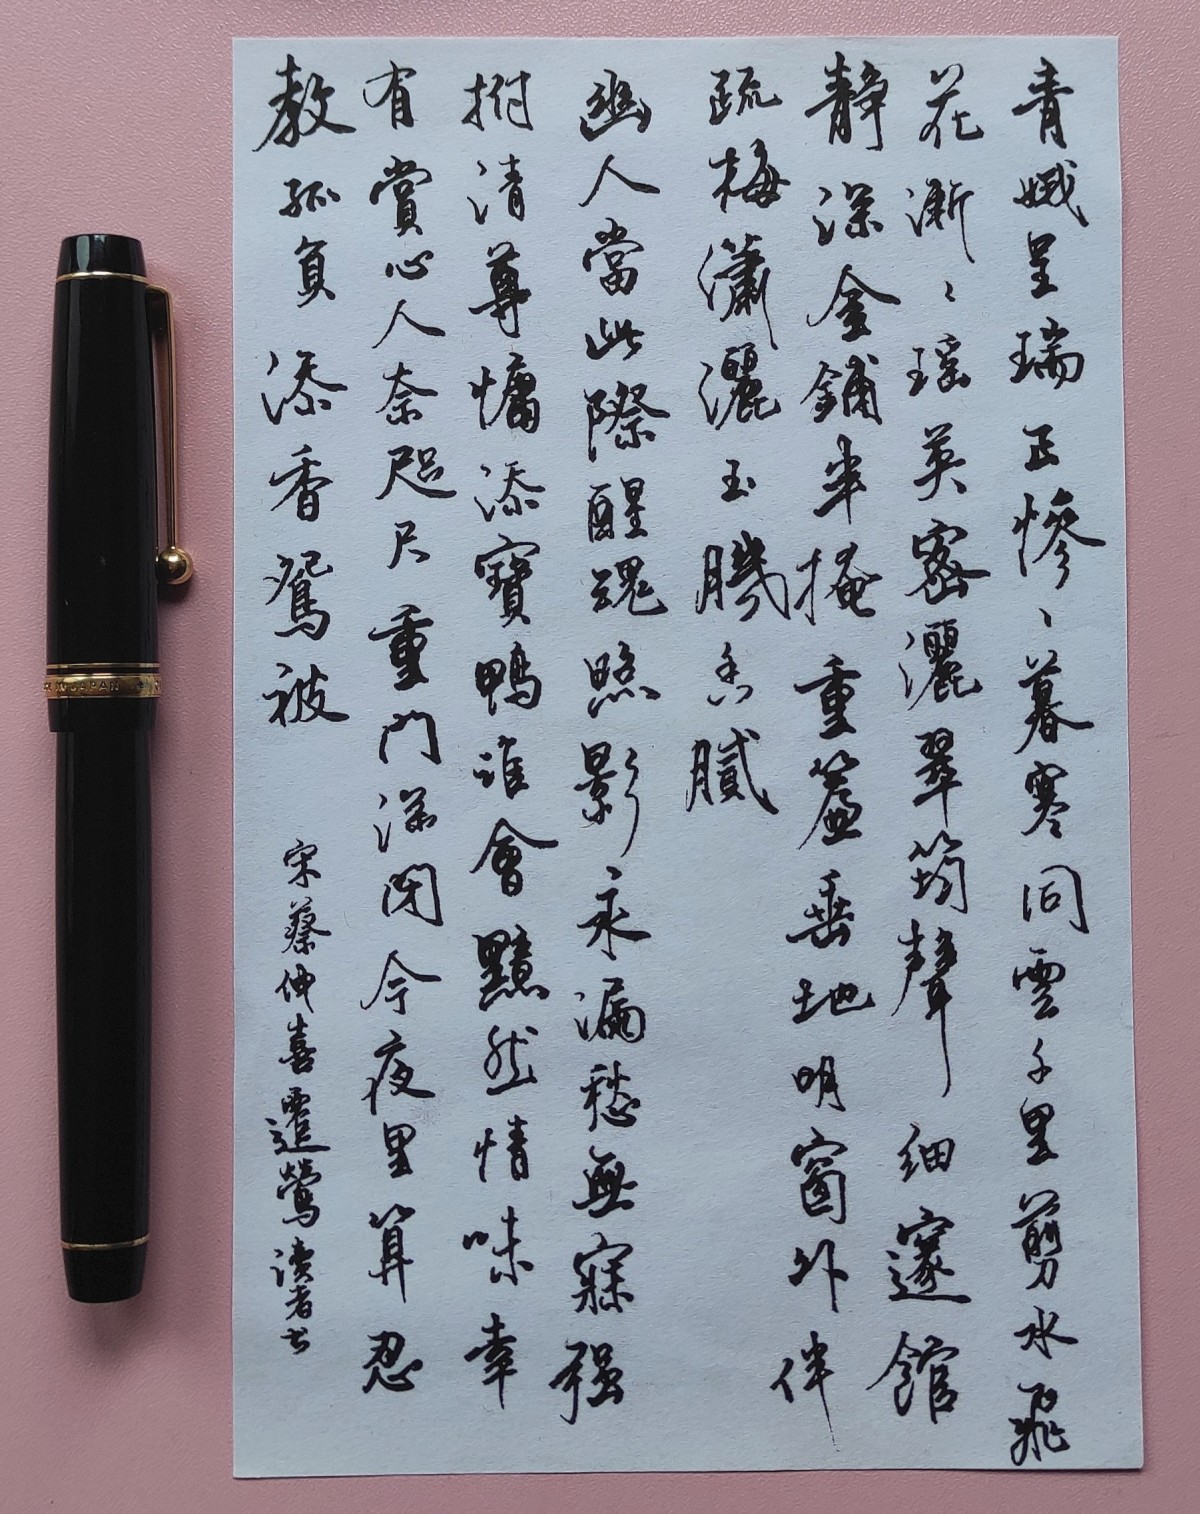 青娥呈瑞正慘〻暮寒同雲千里剪水飛
花漸〻瑶英密灑翠筠聲細邃館
靜深金鋪半掩重簾垂地明窗外伴
疏梅瀟灑玉肌香膩
幽人當此際醒魂照影永漏愁無寐强
拊清尊慵添寶鴨誰會黯然情味幸
有賞心人奈咫尺重門深閉今夜里算忍
教孤負添香鴛被
宋蔡伸喜遷鶯讀者书
JAPAN